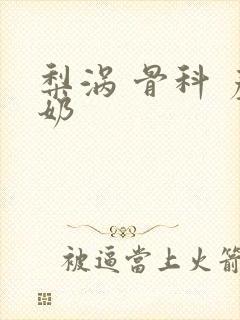 梨涡 骨科
奶
被逼當上火箭